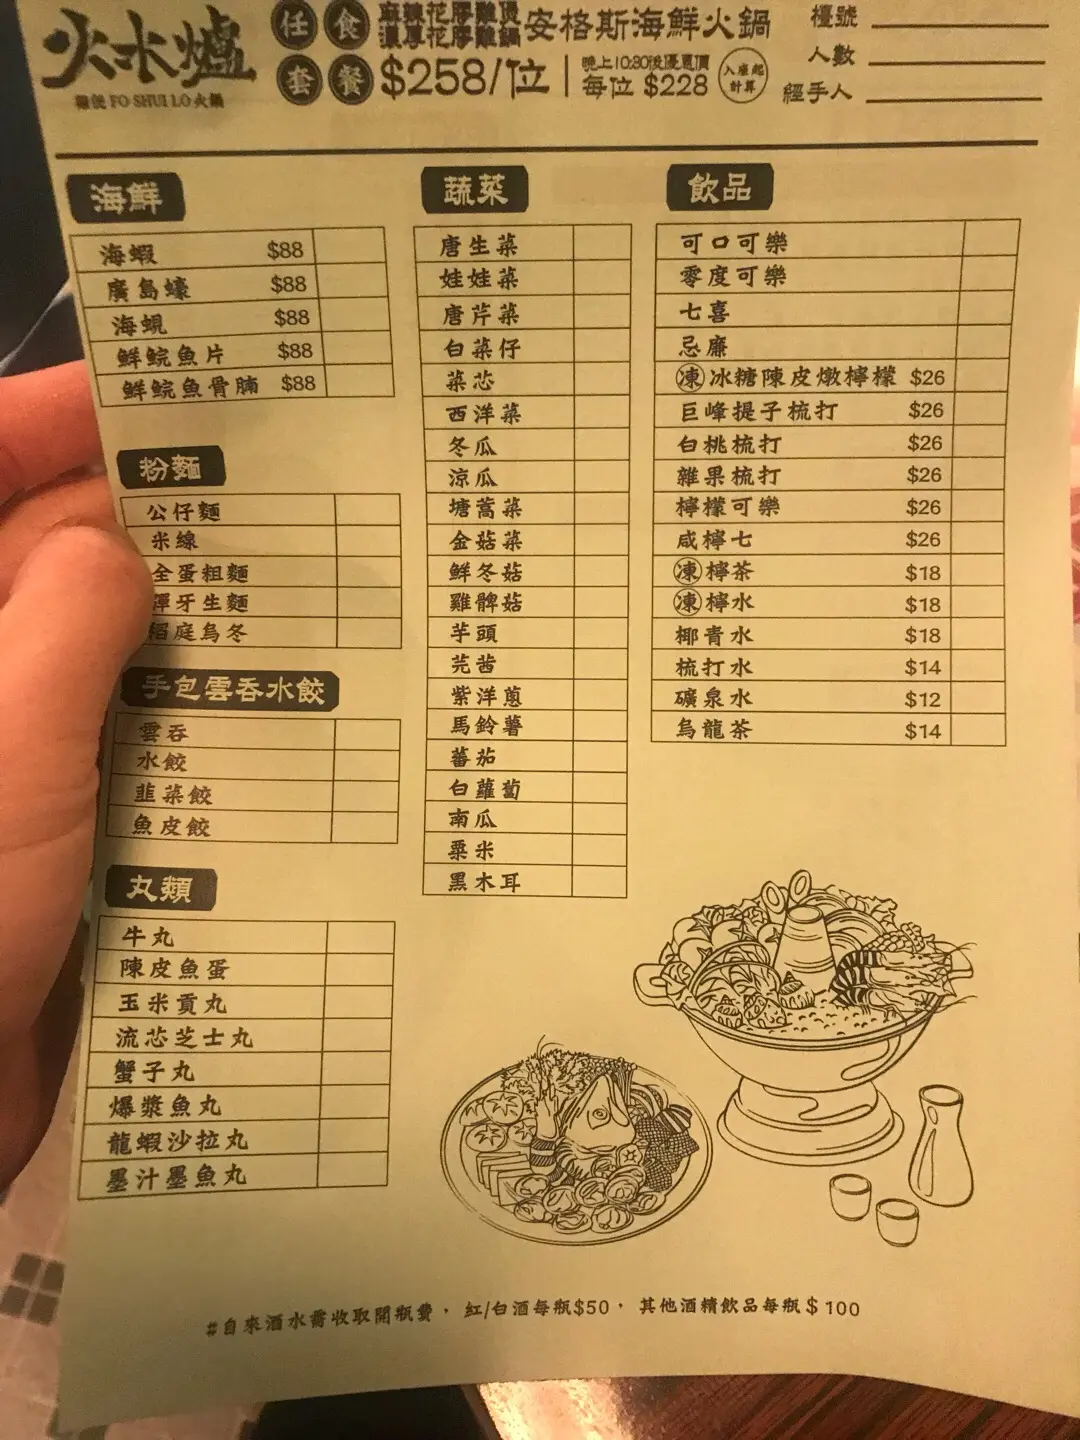 火水爐
FO SHUI LO 火鍋
任食套餐
麻辣花膠雞煲
濃厚花膠雞鍋
安格斯海鮮火鍋
$258/位
晚上10:30後優惠價
每位 $228
入座起計算
檯號
人數
經手人
海鮮
海蝦 $88
廣島蠔 $88
海蜆 $88
鮮鯇魚片 $88
鮮鯇魚骨腩 $88
粉麵
公仔麵
米線
全蛋粗麵
彈牙生麵
稻庭烏冬
手包雲吞水餃
雲吞
水餃
韮菜餃
魚皮餃
丸類
牛丸
陳皮魚蛋
玉米貢丸
流芯芝士丸
蟹子丸
爆漿魚丸
龍蝦沙拉丸
墨汁墨魚丸
蔬菜
唐生菜
娃娃菜
唐芹菜
白菜仔
菜芯
西洋菜
冬瓜
涼瓜
塘蒿菜
金菇菜
鮮冬菇
雞髀菇
芋頭
芫茜
紫洋蔥
馬鈴薯
蕃茄
白蘿蔔
南瓜
粟米
黑木耳
飲品
可口可樂
零度可樂
七喜
忌廉
凍冰糖陳皮燉檸檬 $26
巨峰提子梳打 $26
白桃梳打 $26
雜果梳打 $26
檸檬可樂 $26
咸檸七 $26
凍檸茶 $18
凍檸水 $18
椰青水 $18
梳打水 $14
礦泉水 $12
烏龍茶 $14
#自來酒水需收取開瓶費，紅/白酒每瓶$50，其他酒精飲品每瓶$100